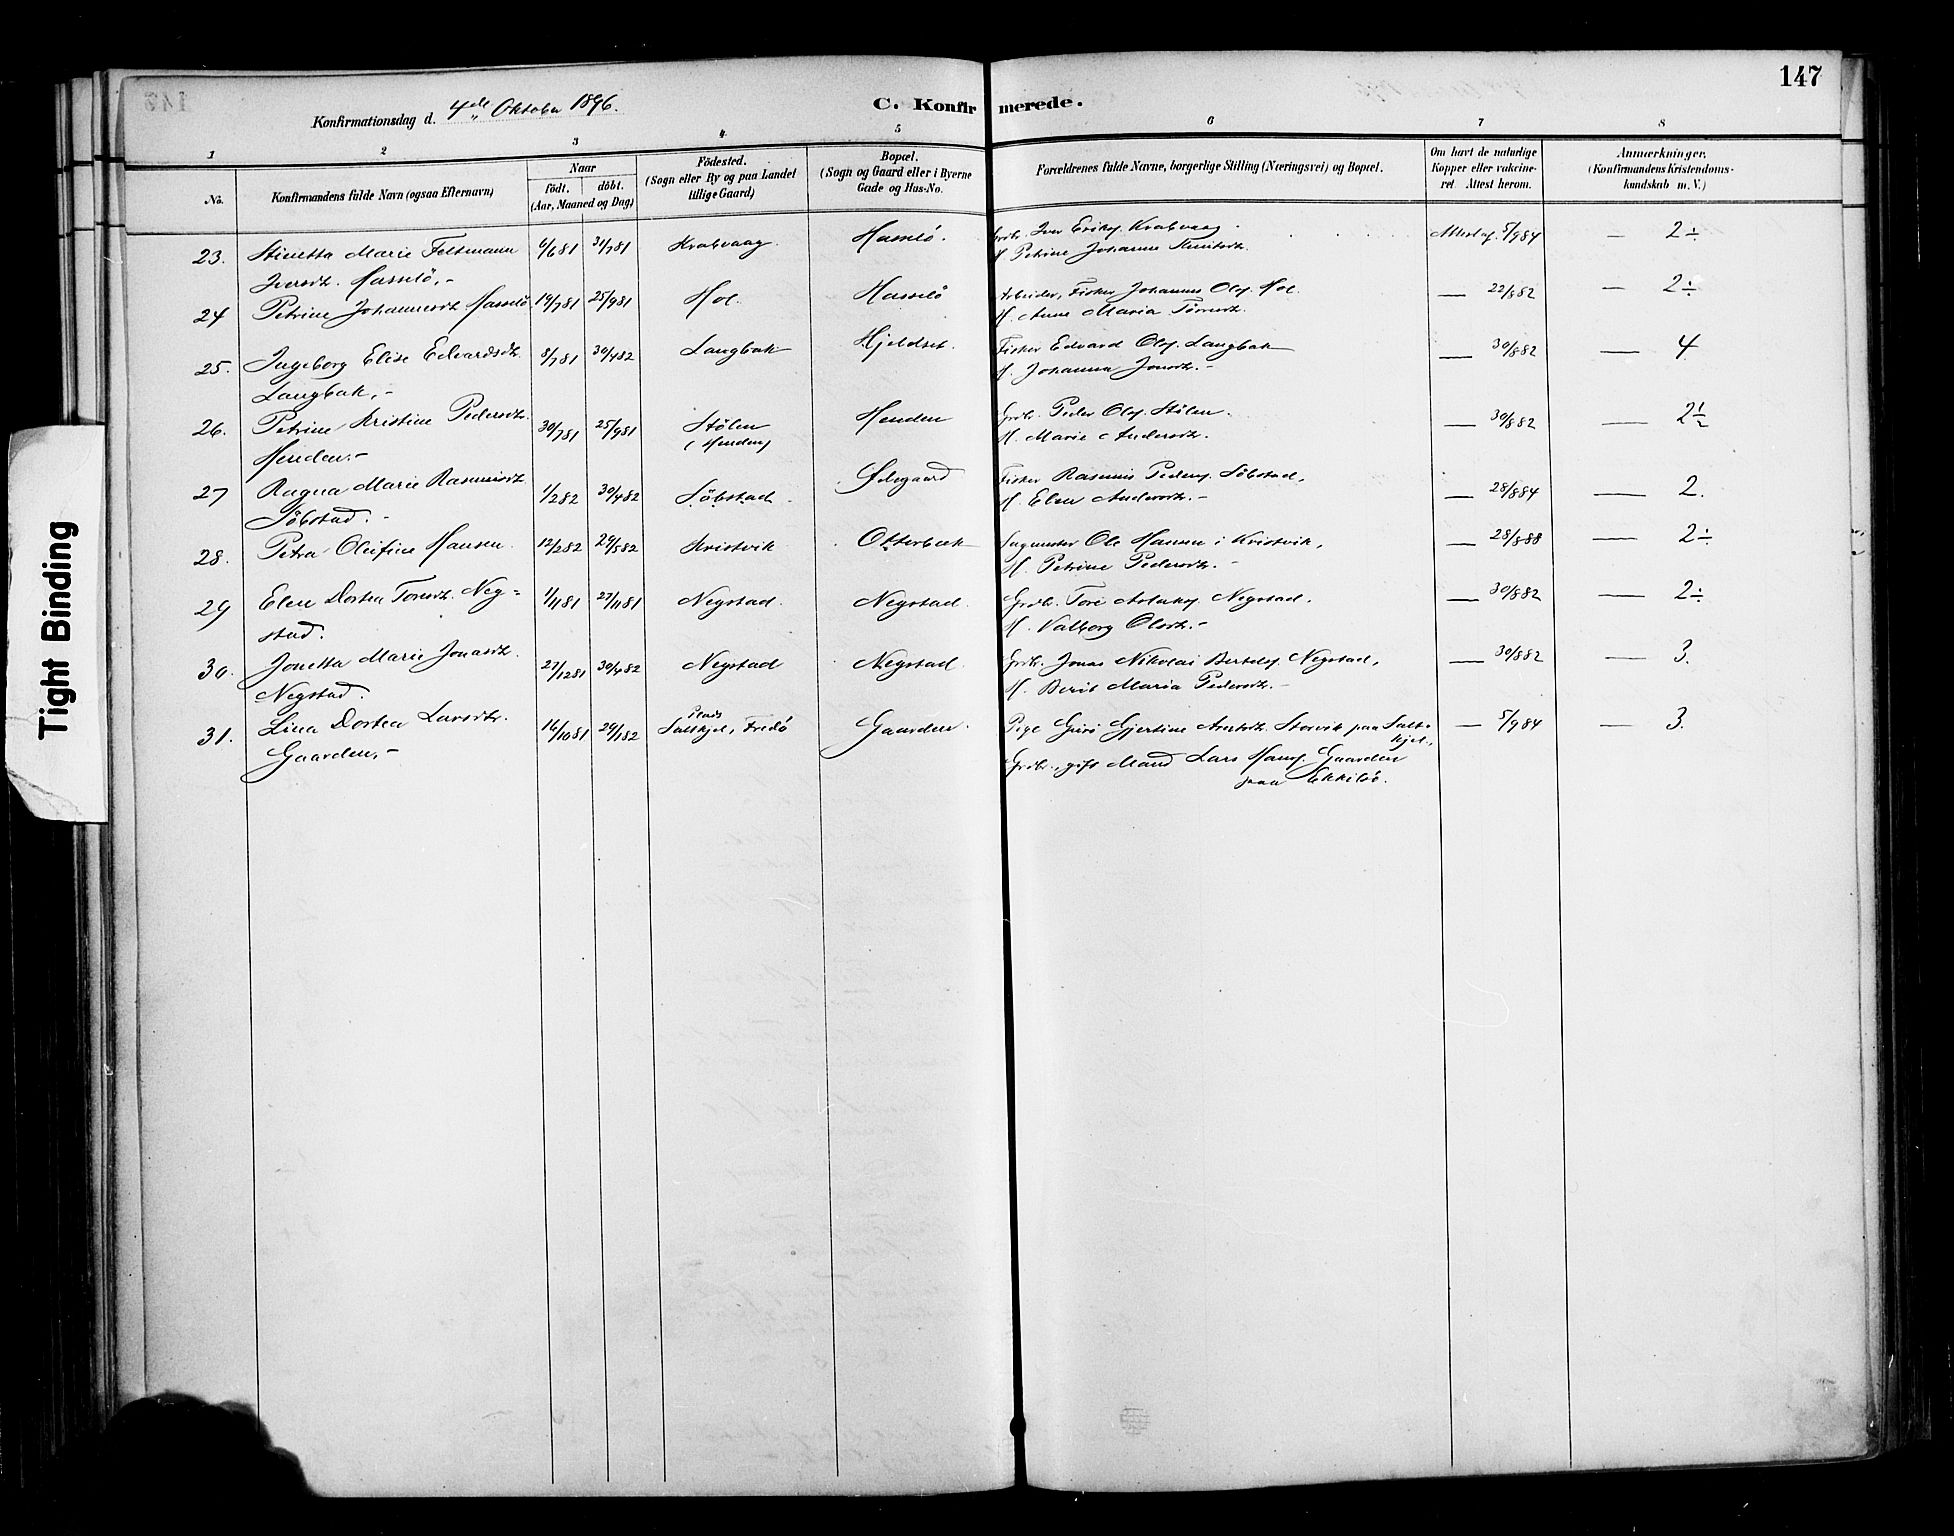 147
Konfirmationsdag d. 4de Oktober 1896.
C. Konfirmerede.
1 2 3 4 5 6 7 8
No. Konfirmandens fulde Navn (ogsaa Efternavn) Naar födt. döbt. (Aar, Maaned og Dag) Födested. (Sogn eller By og paa Landet tillige Gaard) Bopæl. (Sogn og Gaard eller i Byerne Gade og Hus-No. Forældrenes fulde Navne, borgerlige Stilling (Næringsvei) og Bopæl. Om havt de naturlige Kopper eller vakcineret. Attest herom. Anmærkninger. (Konfirmandens Kristendomskundskab m. V.)
23. Stinetta Marie Feltmann 6/6 81 31/7 81 Krabvaag Hasselö. Grdbr. Iver Eriks. Krabvaag Attest af 5/9 84 — 2÷
Iversdtr. Hasselö.- H. Petrine Johanne Knutsdtr.
24 Petrine Johannesdtr. Hasselö 19/7 81 25/9 81 Hol. Hasselö Arbeider, Fisker Johannes Ols. Hol. — 22/8 82 — 2÷
H. Anne Maria Töresdtr.
25. Ingeborg Elise Edvardsdtr. 8/7 81 30/4 82 Langbak Hjeldset. Fisker Edvard Ols. Langbak — 30/8 82 — 4
Langbak.- H. Johanna Jonsdtr.-
26. Petrine Kristine Pedersdtr. 30/7 81 25/9 81 Stölen Henden Grdbr. Peder Ols. Stölen. — 30/8 82 — 2½
Henden.- (Henden) H. Marie Andersdtr.
27 Ragna Marie Rasmusdtr. 1/2 82 30/4 82 Söbstad Ødegaard Fisker Rasmus Peders. Söbstad, — 28/8 84 — 2.
Söbstad.- H. Elen Andersdtr.-
28. Petra Olufine Hansen. 12/2 82 29/5 82 Kristvik Otterbæk Ole Hansen i Kristvik, — 28/8 88 — 2÷
H. Petrine Pedersdtr.-
29 Elen Dortea Toresdtr. Neg= 1/11 81 27/11 81 Negstad. Negstad. Grdbr. Tore Aslaks. Negstad, — 30/8 82 — 2÷
stad. H. Valborg Olsdtr.-
30. Jonetta Marie Jonasdtr. 27/12 81 30/4 82 Negstad Negstad. Grdbr. Jonas Nikolai Bertels. Negstad, — 30/8 82 — 3.
Negstad. H. Berit Maria Pedersdtr.-
31. Lina Dortea Larsdtr. 16/10 81 29/1 82 Plads Saltkjel, Fredö Gaarden. Pige Guro Gjertine Arntsdtr. Storvik paa Salt- — 5/9 84 — 3.
kjel,
Gaarden.- Grdbr., gift Mand Lars Hans. Gaarden
paa Ekkilsö.
Tight Binding